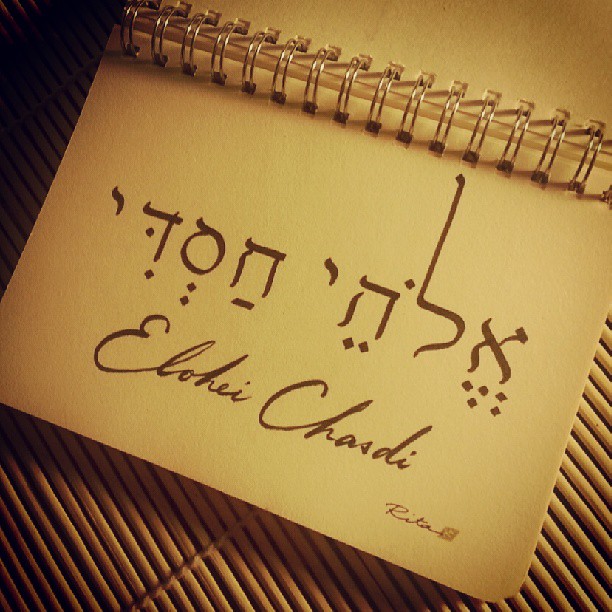 אֱלֹהֵי חַסְדִּי
Elohei Chasdi
Rita